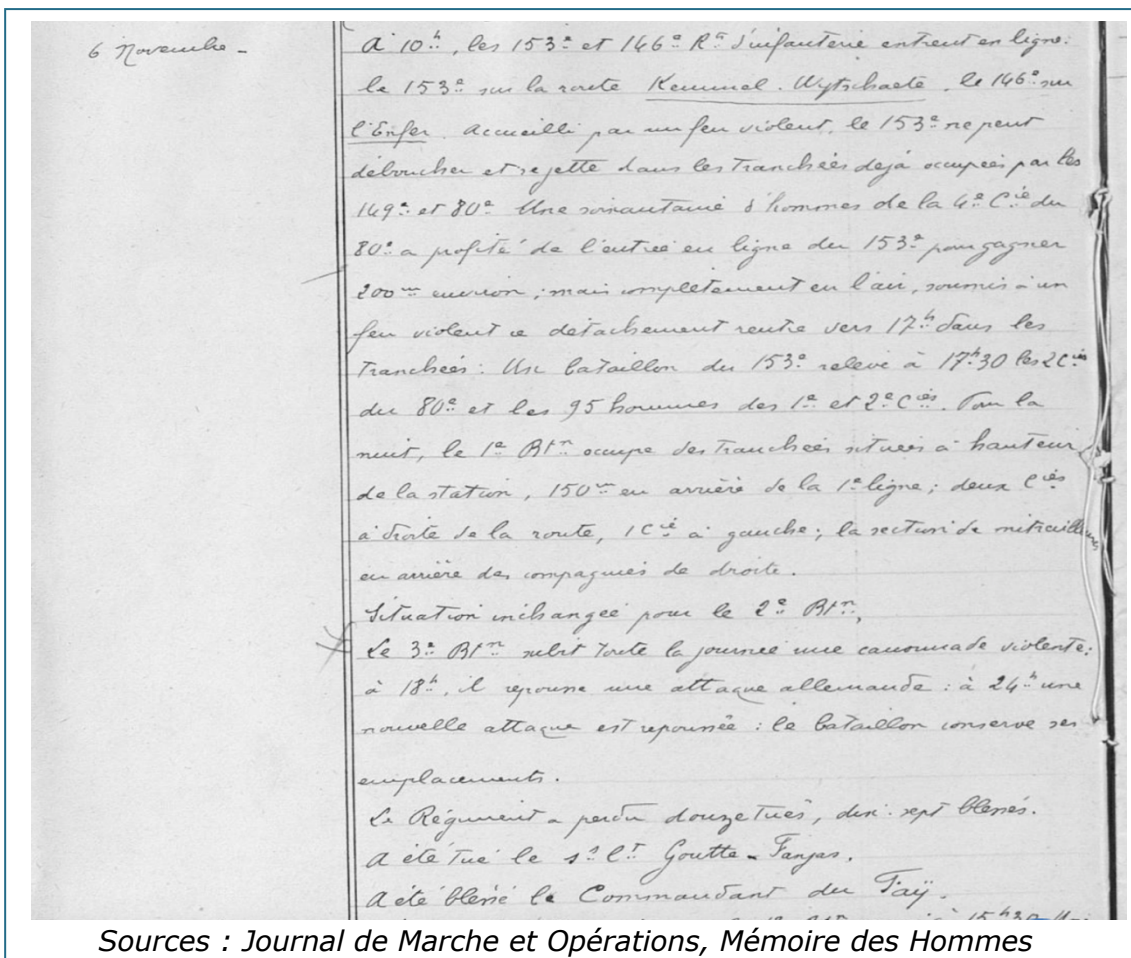 6 Novembre -
A 10h, les 153e et 146e Rts d'infanterie entrent en ligne:
le 153e sur la route Kemmel. Wytschaete, le 146e sur
l'Enfer. Accueilli par un feu violent, le 153e ne peut
déboucher et se jette dans les tranchées déjà occupées par les
149e et 80e Une soixantaine d'hommes de la 4e Cie du
80e a profité de l'entrée en ligne du 153e pour gagner
200m environ; mais complètement en l'air, soumis à un
feu violent ce détachement rentre vers 17h dans les
tranchées: Un bataillon du 153e relève à 17h30 les 2 Cies
du 80e et les 95 hommes des 1e et 2e Cies. Pour la
nuit, le 1e Btn occupe des tranchées situées à hauteur
de la station, 150m en arrière de la 1e ligne; deux Cies
à droite de la route, 1 Cie à gauche; la section de mitrailleuses
en arrière des compagnies de droite.
Situation inchangée pour le 2e Btn,
Le 3e Btn subit toute la journée une canonnade violente:
à 18h, il repousse une attaque allemande: à 24h une
nouvelle attaque est repoussée: le bataillon conserve ses
emplacements.
Le Régiment a perdu douze tués, dix-sept blessés.
A été tué le s/ Lt Goutte-Fanjas.
A été blessé le Commandant du Faÿ.
à 15h30
Sources : Journal de Marche et Opérations, Mémoire des Hommes